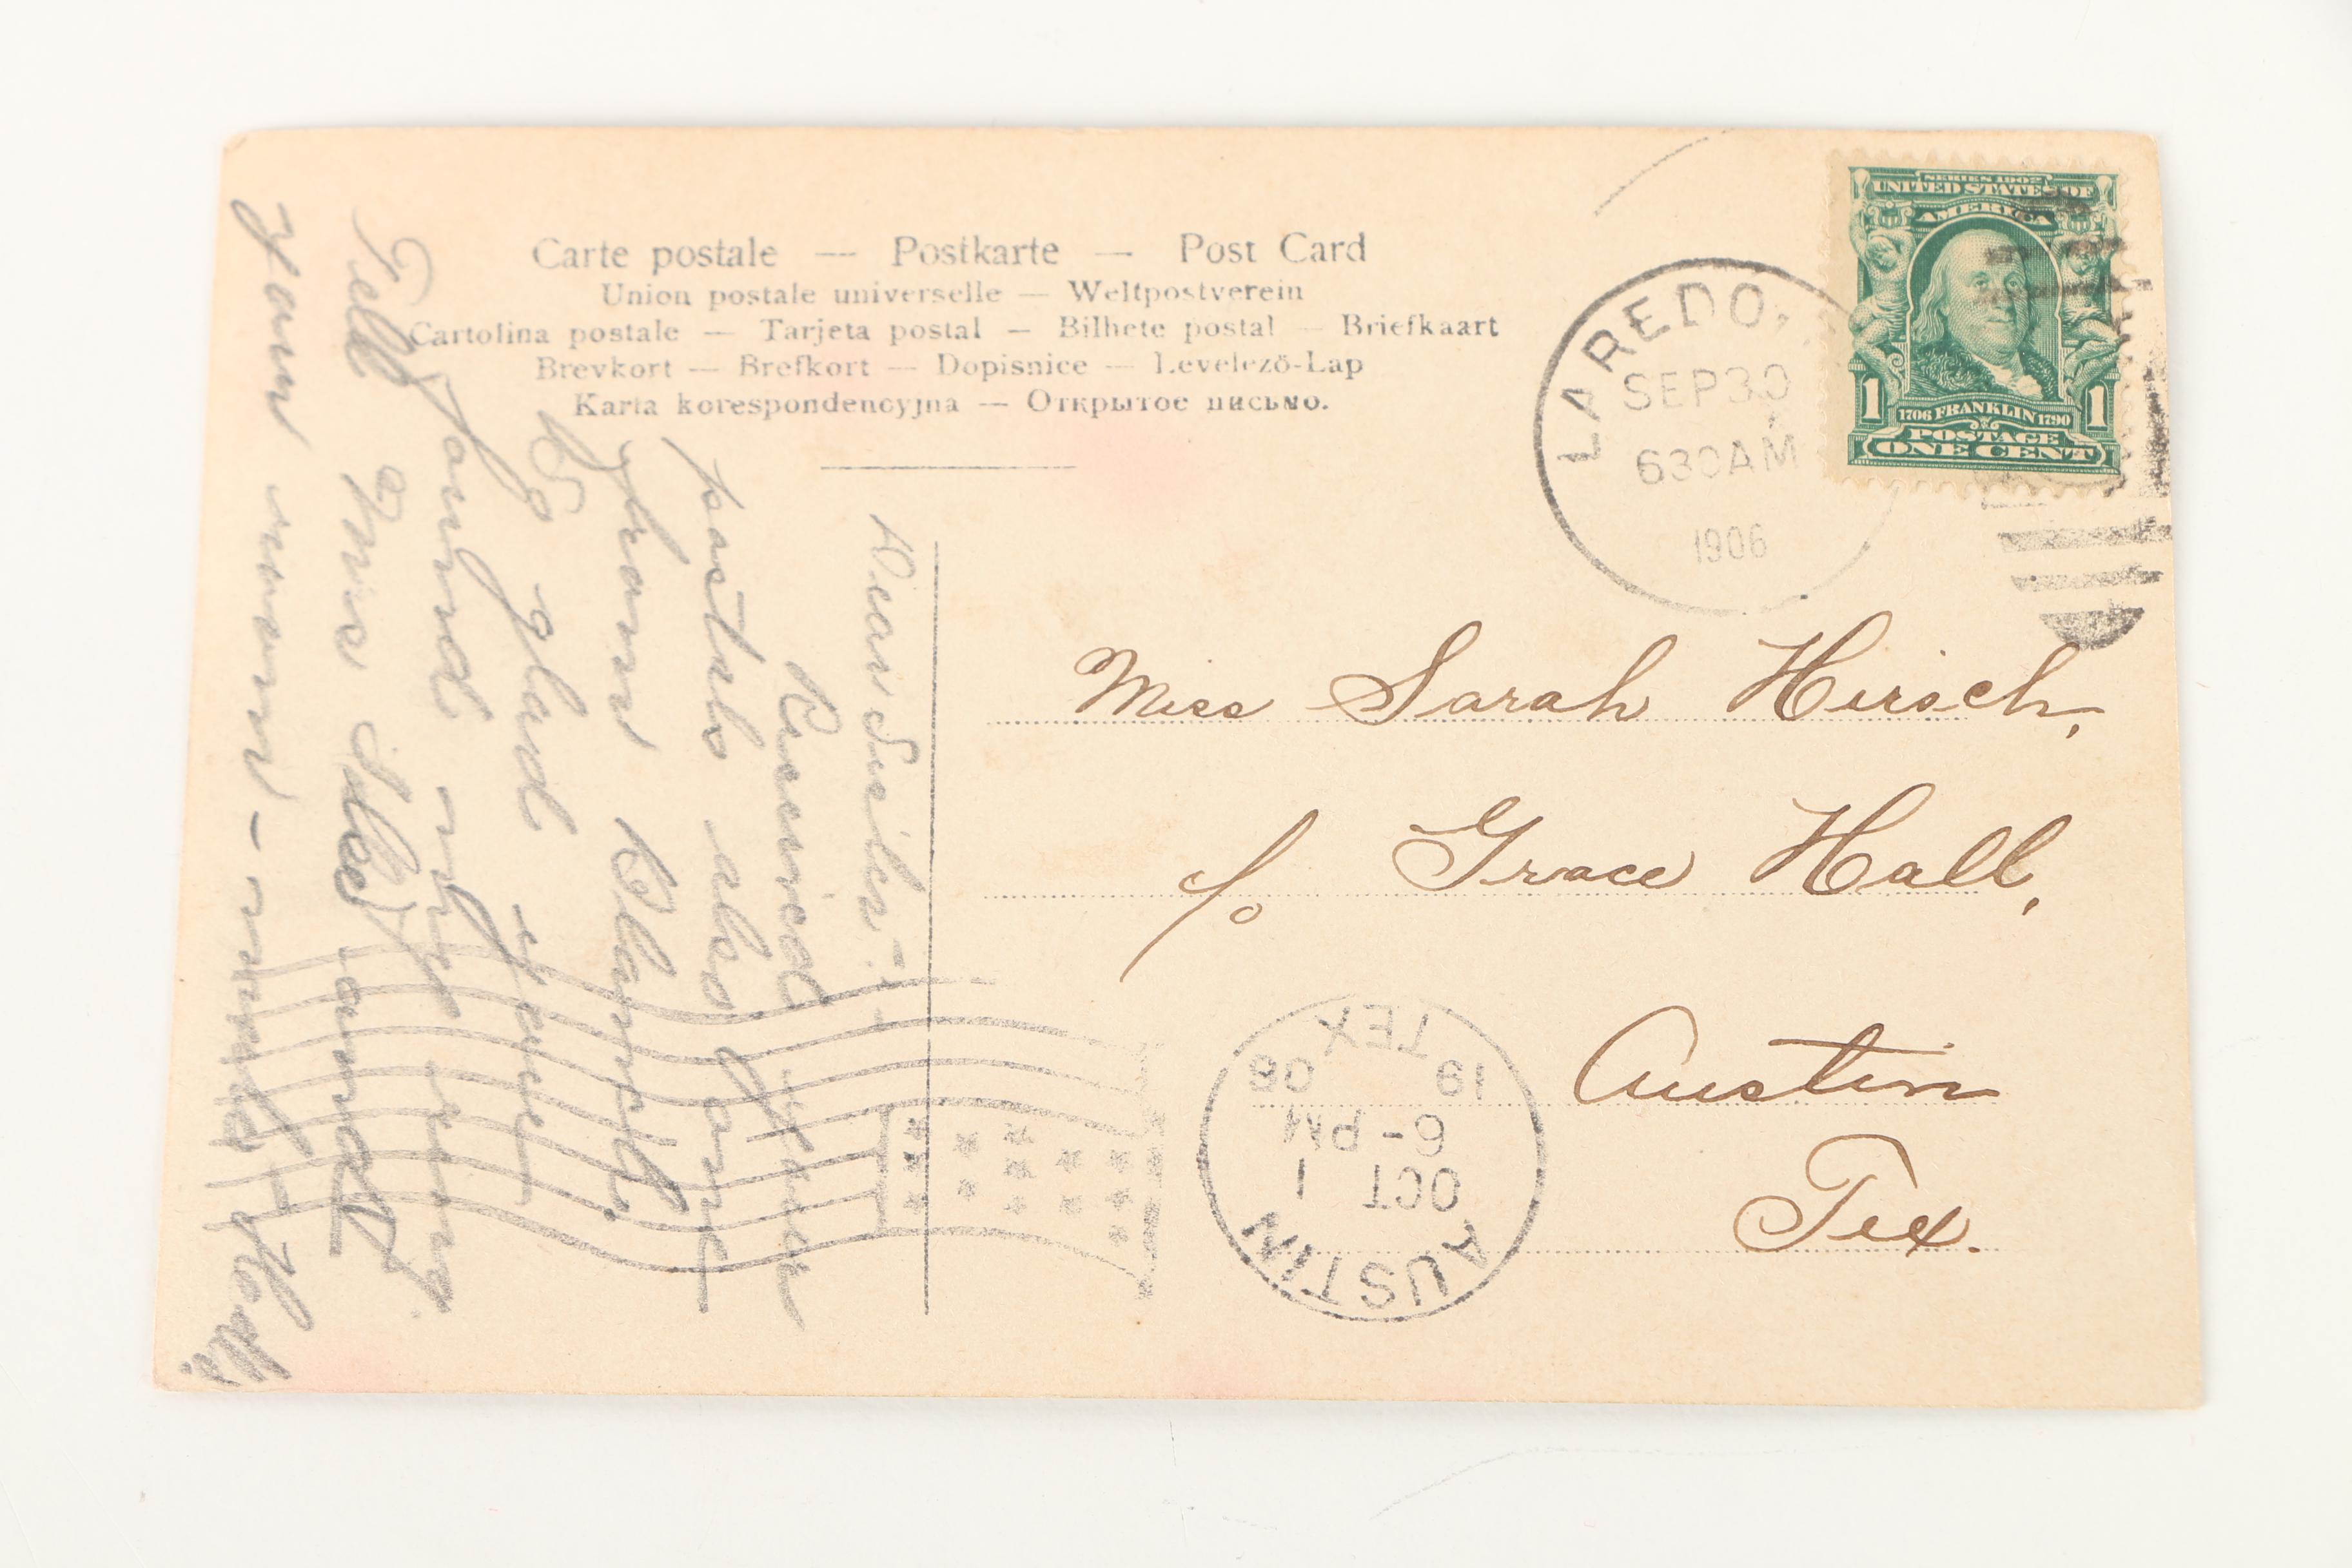 Carte postale — Postkarte — Post Card
Union postale universelle — Weltpostverein
Cartolina postale — Tarjeta postal — Bilhete postal — Briefkaart
Brevkort — Brefkort — Dopisnice — Levelező-Lap
Karta korespondencyjna — Открытое письмо.
SERIES 1902
UNITED STATES OF
AMERICA
1 1
1706 FRANKLIN 1790
POSTAGE
ONE CENT
LAREDO,
SEP 30
630 AM
1906
Miss Sarah Hirsch,
c/o Grace Hall,
Austin
Tex.
AUSTIN
OCT 1
6-PM
19 06
TEX
Dear
Received your
postals also one
from Blanch.
So glad you
found my ring
Tell Mrs and
your mom -